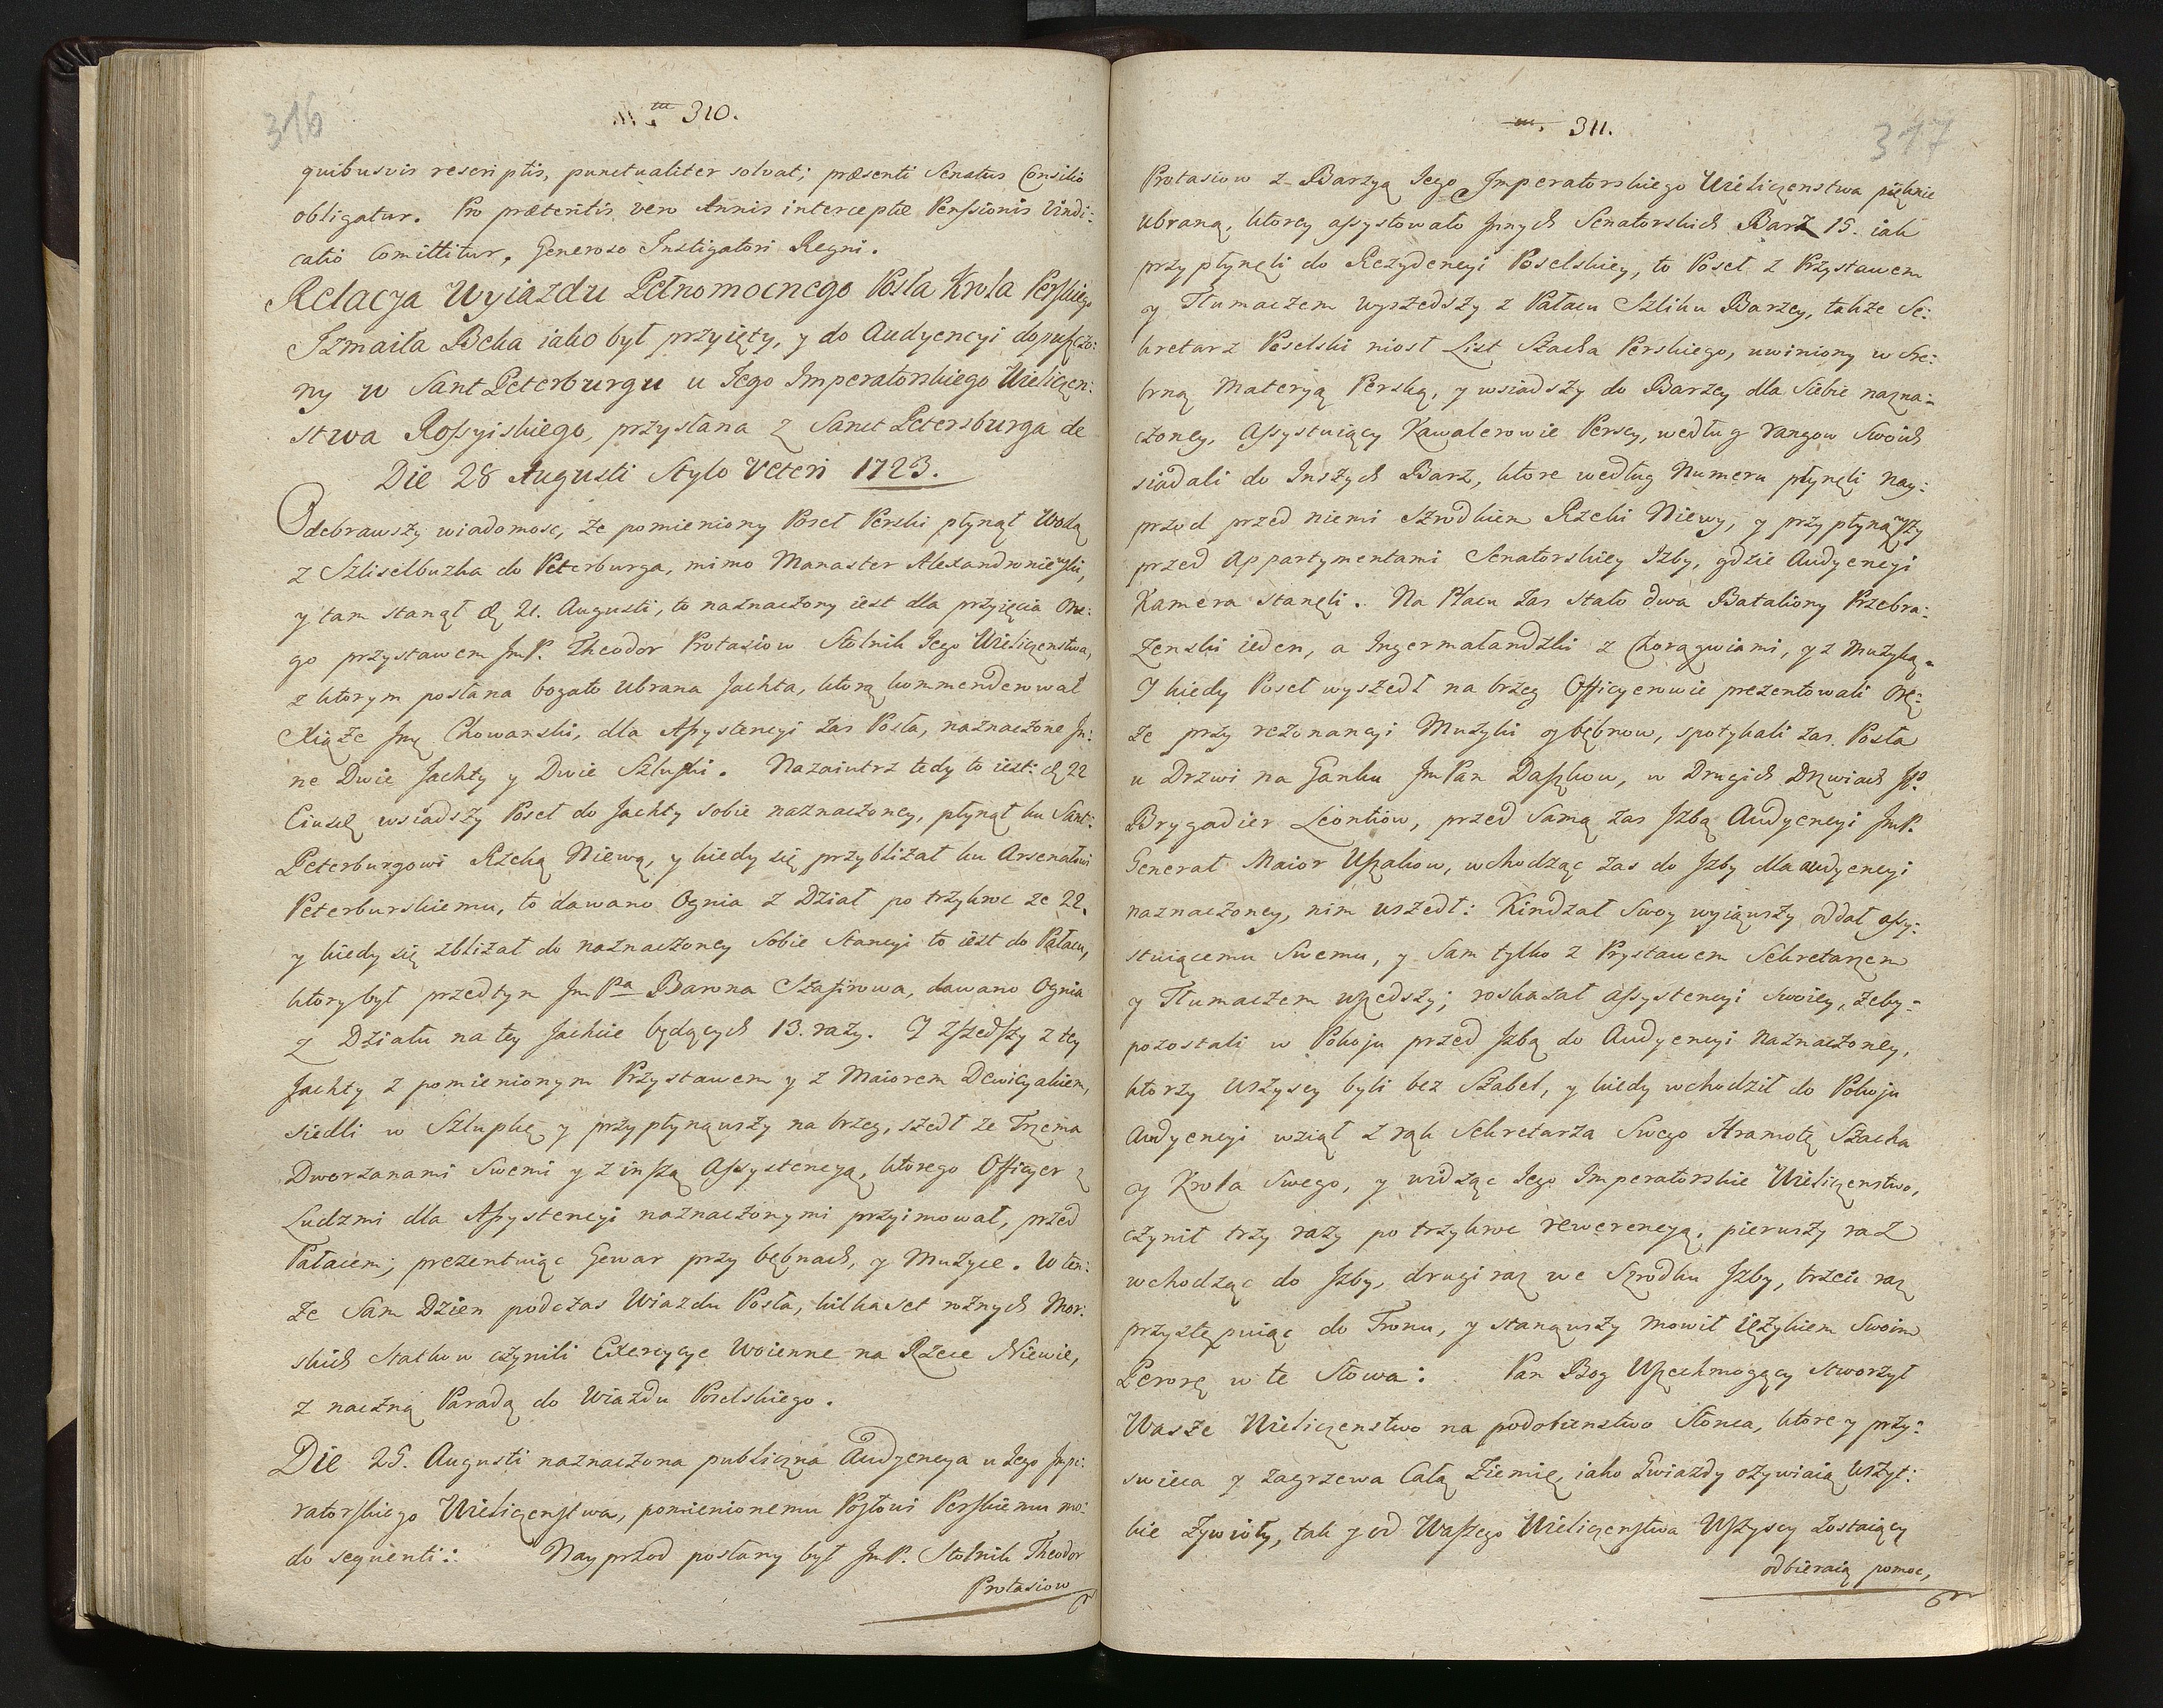 316
310.
quibusvis rescriptis, punctualiter solvat; præsenti Senatus Consilio
obligatur. Pro præteritis vero Annis interceptæ Penssionis Vindi:
catio Comittitur, Generoso Instigatori Regni.
Relacja Wyiazdu Pełnomocnego Posła Krola Perskiego
Izmaiła Beka iako był przyięty, y do Audyencyi dopuszczo:
ny w Sant Peterburgu u Jego Imperatorskiego Wieliczen:
stwa Rossyiskiego, przysłana z Sanct Petersburga de
Die 28 Augusti Stylo Veteri 1723.
Odebrawszy wiadomosc, że pomieniony Poseł Perski płynął Wodą
z Szliselburka do Peterburga, mimo Manaster Alexandroniewski,
y tam stanął d. 21. Augusti, to naznaczony iest dla przyięcia One:
go przystawem JmP. Theodor Protasiow Stolnik Jego Wieliczenstwa,
z ktorym posłana bogato ubrana Jachta, ktorą kommenderował
Xiąże Jmę Chowanski, dla Assystencyi zas Posła, naznaczone In:
ne Dwie Jachty y Dwie Szlupki. Nazaiutrz tedy to iest: d. 22
Eiusd. wsiadszy Poseł do Jachty sobie naznaczoney, płynął ku Sant:
Peterburgowi Rzeką Niewą, y kiedy się przybliżał ku Arsenałowi
Peterburskiemu, to dawano Ognia z Dział po trzykroc ze 22.
y kiedy się zbliżał do naznaczoney sobie Stancyi to iest do Pałacu,
ktory był przedtym JmPa Barona Szafirowa, dawano Ognia
z Działu na tey Jachcie będących 13. razy. I zszedszy z tey
Jachty z pomienionym Przystawem y z Maiorem Dewicyakiem,
siedli w Szlupkę y przypłynąwszy na brzeg, szedł ze Trzema
Dworzanami Swemi y z inszą Assystencyą, ktorego Officyer z
Ludzmi dla Assystencyi naznaczonymi przyimował, przed
Pałacem; prezentuiąc Gewar przy bębnach, y Muzyce. W ten:
że Sam Dzien podczas Wiazdu Posła, kilkaset rożnych Mor:
skich Statkow czynili Exercycye Woienne na Rzece Niewie,
z naczną Paradą do Wiazdu Poselskiego.
Die 25. Augusti naznaczona publiczna Audyencya u Jego Impe:
ratorskiego Wieliczenstwa, pomienionemu Posłowi Perskiemu mo:
do sequenti: Nayprzod posłany był JmP. Stolnik Theodor
Protasiow
311.
317
Protasiow z Barzyą Jego Imperatorskiego Wieliczenstwa pięknie
ubraną, ktorey assystowało Innych Senatorskich Barz 15. iak
przypłynęli do Rezydencyi Poselskiey, to Poseł z Przystawem
y Tłumaczem wyszedszy z Pałacu Szli ku Barzey, także Se:
kretarz Poselski niosł List Szacha Perskiego, uwiniony w Sre:
brną Materyą Perską, y wsiadszy do Barzey dla Siebie nazna:
czoney, Assystuiący Kawalerowie Persey, według rangow Swoich
siadali do Inszych Barz, ktore według Numeru płynęli nay:
przod przed niemi szrodkiem Rzeki Niewy, y przypłynąwszy
przed Appartymentami Senatorskiey Izby, gdzie Audyencyi
Kamera stanęli. Na Placu zas stało dwa Bataliony Przebra:
żenski ieden, a Ingermałandzki z Chorągwiami, y z Muzyką.
I kiedy Poseł wyszedł na brzeg Officyerowie prezentowali Orę:
że przy rezonancyi Muzyki y bębnow, spotykali zas Posła
u Drzwi na Ganku Jm Pan Daszkow, w Drugich Drzwiach JP.
Brygadier Leontiow, przed Samą zas Izbą Audyencyi JmP.
Generał Maior Uszakow, wchodząc zas do Izby dla audyencyi
naznaczoney, nim wszedł: Kindzał Swoy wyiąwszy oddał assy:
stuiącemu Swemu, y Sam tylko z Prystawem Sekretarzem
y Tłumaczem wszedszy; roskazał assystencyi swoiey, żeby
pozostali w Pokoju przed Izbą do Audyencyi Naznaczoney,
ktorzy wszyscy byli bez Szabel, y kiedy wchodził do Pokoju
Audyencyi wziął z rąk Sekretarza Swego Hramotę Szacha
y Krola Swego, y widząc Jego Imperatorskie Wieliczenstwo,
czynił trzy razy po trzykroc rewerencyą. pierwszy raz
wchodząc do Izby, drugi raz we Szrodku Izby, trzeci raz
przystępuiąc do Tronu, y stanąwszy mowił ięzykiem Swoim
Perorę w te Słowa: Pan Bog Wszechmogący stworzył
Wasze Wieliczenstwo na podobienstwo Słonca, ktore y przy:
swieca y zagrzewa Całą Ziemię, iako Gwiazdy ożywiaią wszyt:
kie żywioły, tak y od Waszego Wieliczenstwa Wszyscy zostaiący
odbieraią pomoc,